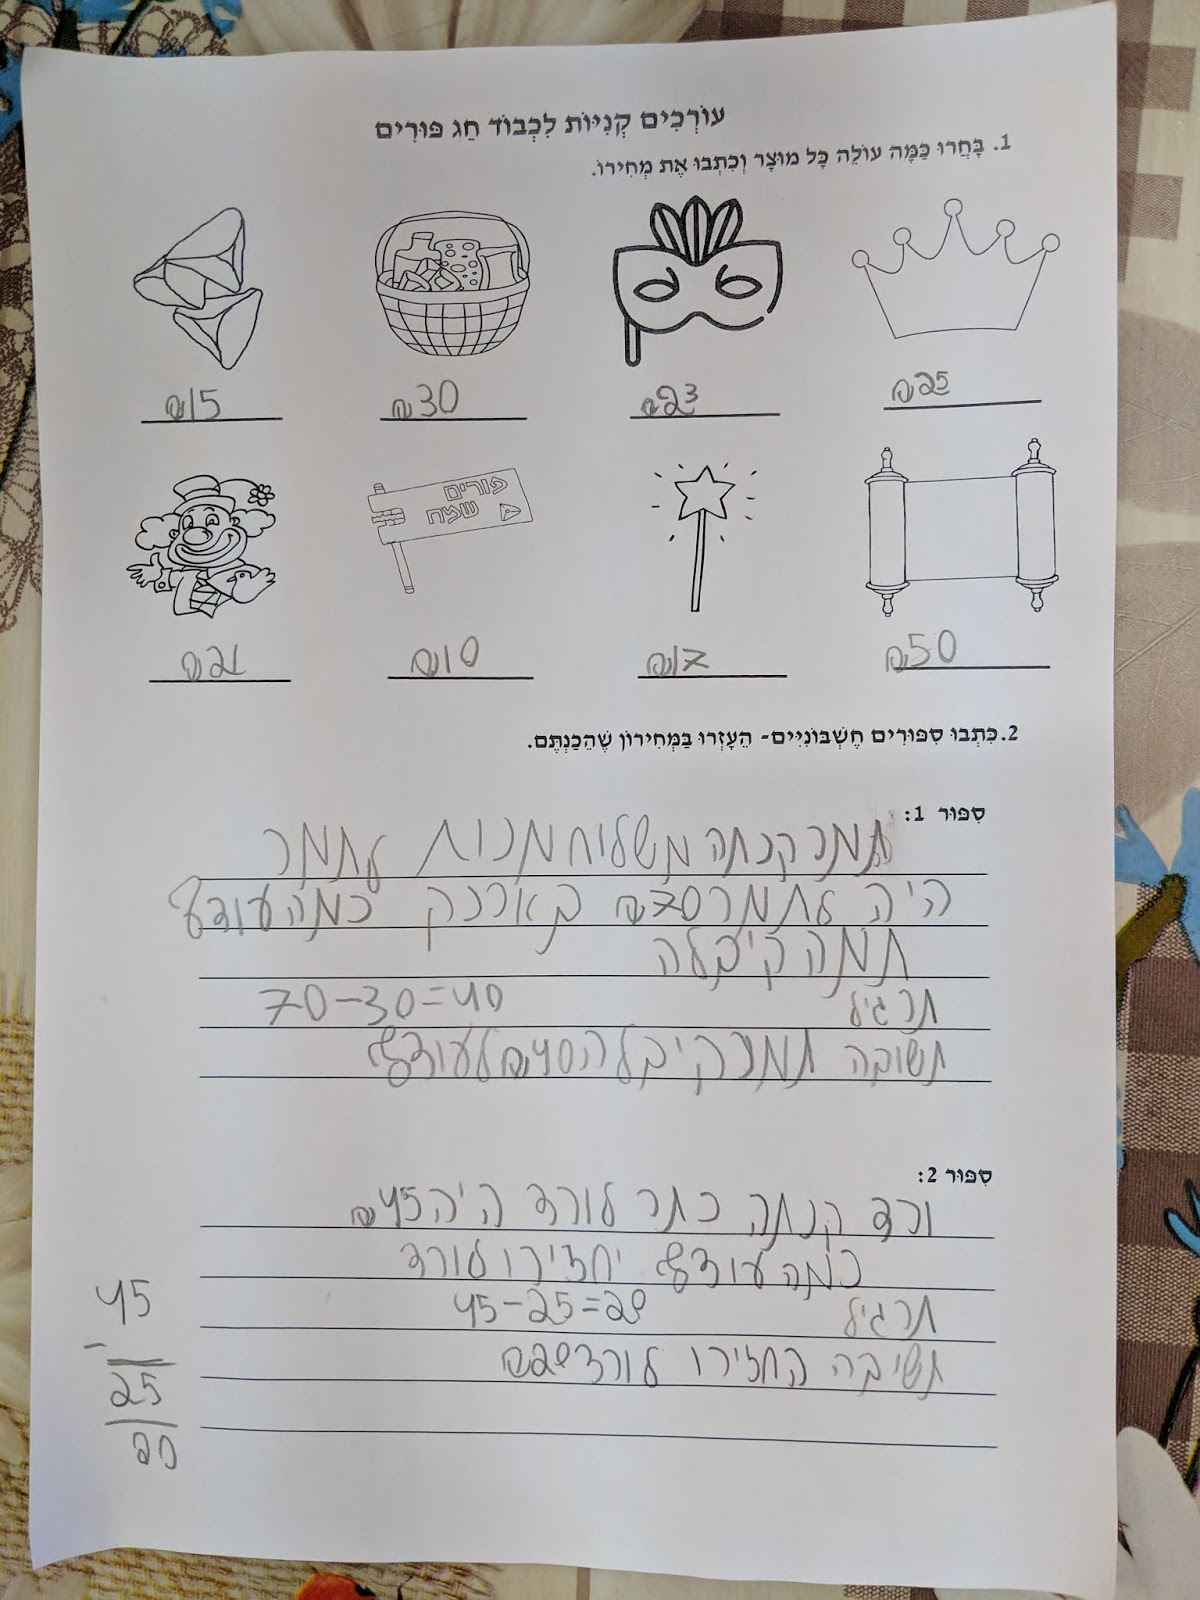 עוֹרְכִים קְנִיּוֹת לִכְבוֹד חַג פּוּרִים
1. בָּחֲרוּ כַּמָּה עוֹלֶה כָּל מוּצָר וְכִתְבוּ אֶת מְחִירוֹ.
₪25 ₪23 ₪30 ₪15
פורים
שמח
₪50 ₪17 ₪10 ₪21
2. כִּתְבוּ סִפּוּרִים חֶשְׁבּוֹנִיִּים- הֵעָזְרוּ בַּמְּחִירוֹן שֶׁהֵכַנְתֶּם.
סִפּוּר 1:
תמר קנתה משלוח מנות לתמר
היה לתמר ₪70 בארנק כמה עודף
תמה קיבלה
תרגיל 70-30=40
תשובה תמר קיבלה ₪40 לעודף
סִפּוּר 2:
ורד קנתה כתר לורד היה ₪45
כמה עודף יחזירו לורד
תרגיל 45-25=20
תשיבה החזירו לורד ₪20
45
-
25
20